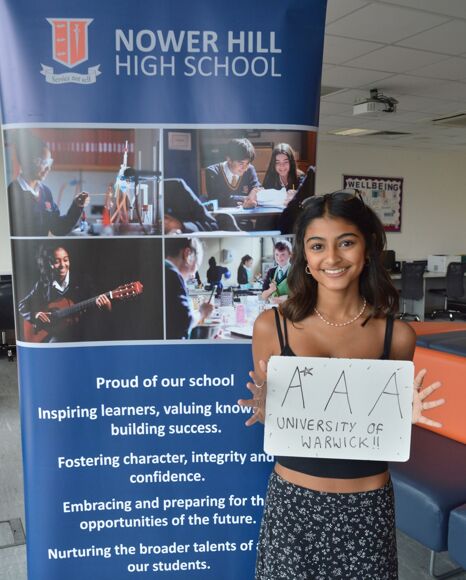 NOWER HILL
HIGH SCHOOL
Service not self
WELLBEING
Proud of our school
Inspiring learners, valuing know
building success.
Fostering character, integrity and
confidence.
Embracing and preparing for th
opportunities of the future.
Nurturing the broader talents of
our students.
A* A A
UNIVERSITY OF
WARWICK!!